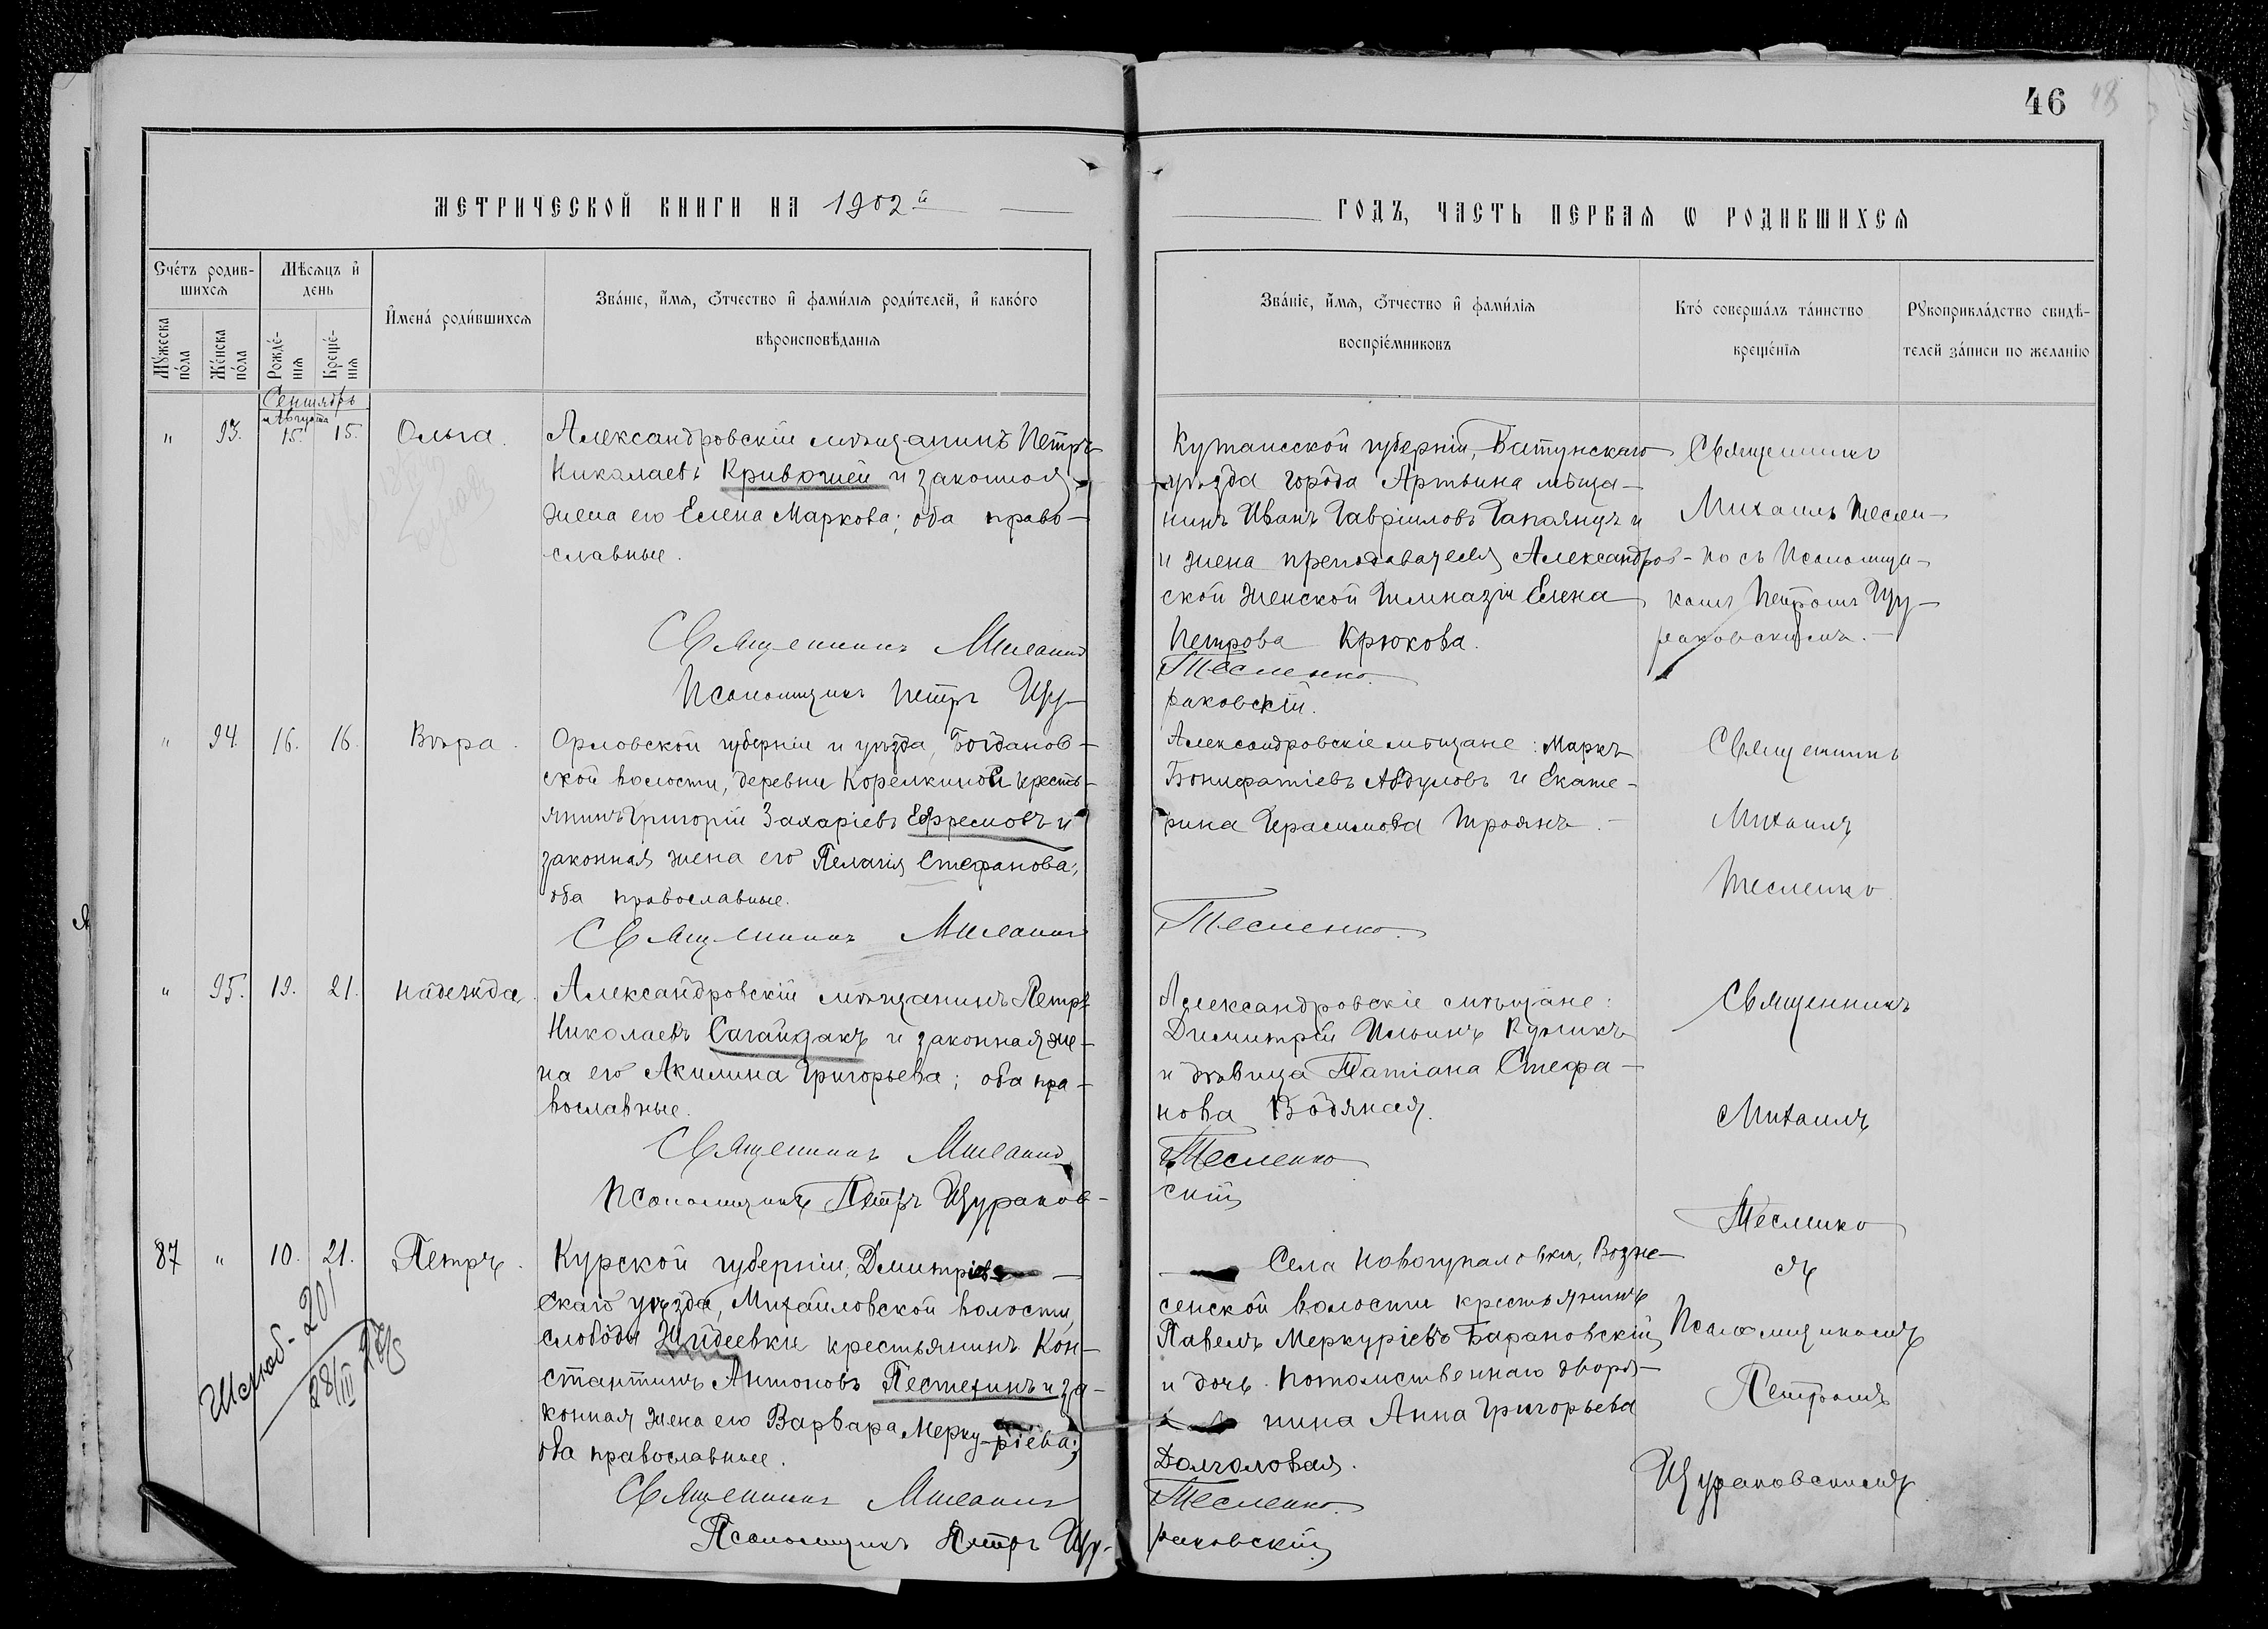 46 48
МЕТРИЧЕСКОЙ КНИГИ НА 1902й
ГОДЪ, ЧАСТЬ ПЕРВАЯ Ѡ РОДИВШИХСЯ
Счетъ родив-
шихся
Мѣсяцъ и
день
Мужеска
пола
Женска
пола
Рожде-
нія
Креще-
нія
Имена родившихся
Званіе, имя, отчество и фамилія родителей, и какого
вѣроисповѣданія
Званіе, имя, отчество и фамилія
воспріемниковъ
Кто совершалъ таинство
крещенія
Рукоприкладство свидѣ-
телей записи по желанію
Сентябрь
Августа
" 93. 15. 15. Ольга.
Александровскій мѣщанинъ Петръ
Николаевъ Кривошей и законная
жена его Елена Маркова; оба право-
славные.
Священникъ Михаилъ
Псаломщикъ Петръ Цу-
Кутаисской губерніи, Батумскаго
уѣзда города Артвина мѣща-
нинъ Иванъ Гавріиловъ Гапоянцъ и
и жена преподавателя Александров-
ской женской Гимназіи Елена
Петрова Крюкова.
Тесленко.
раковскій.
Священникъ
Михаилъ Теслен-
ко съ Псаломщи-
комъ Петромъ Цу-
раковскимъ.
" 94. 16. 16. Вѣра.
Орловской губерніи и уѣзда, Богданов-
ской волости, деревни Корелкиной кресть-
янинъ Григорій Захаріевъ Ефремовъ и
законная жена его Пелагія Стефанова;
оба православные.
Священникъ Михаилъ
Александровскіе мѣщане: Маркъ
Бонифатіевъ Авдуловъ и Екате-
рина Герасимова Троянъ.
Тесленко.
Священникъ
Михаилъ
Тесленко
" 95. 19. 21. Надежда.
Александровскій мѣщанинъ Петръ
Николаевъ Сагайдакъ и законная же-
на его Акилина Григорьева; оба пра-
вославные.
Священникъ Михаилъ
Псаломщикъ Петръ Цураков-
Александровскіе мѣщане:
Димитрій Ильинъ Куликъ
и дѣвица Татіана Стефа-
нова Водяная.
Тесленко
скій
Священникъ
Михаилъ
Тесленко
съ
Псаломщикомъ
Петромъ
Цураковскимъ
87 " 10. 21. Петръ.
Курской губерніи, Дмитріев-
скаго уѣзда, Михайловской волости,
слободы Жидеевки крестьянинъ Кон-
стантинъ Антоновъ Пестехинъ и за-
конная жена его Варвара Мерку-ріева;
оба православные.
Священникъ Михаилъ
Псаломщикъ Петръ Цу-
Села Новогупаловки, Возне-
сенской волости крестьянинъ
Павелъ Меркуріевъ Барановскій
и дочь потомственнаго дворя-
нина Анна Григорьева
Долголовая.
Тесленко.
раковскій
201
28/III